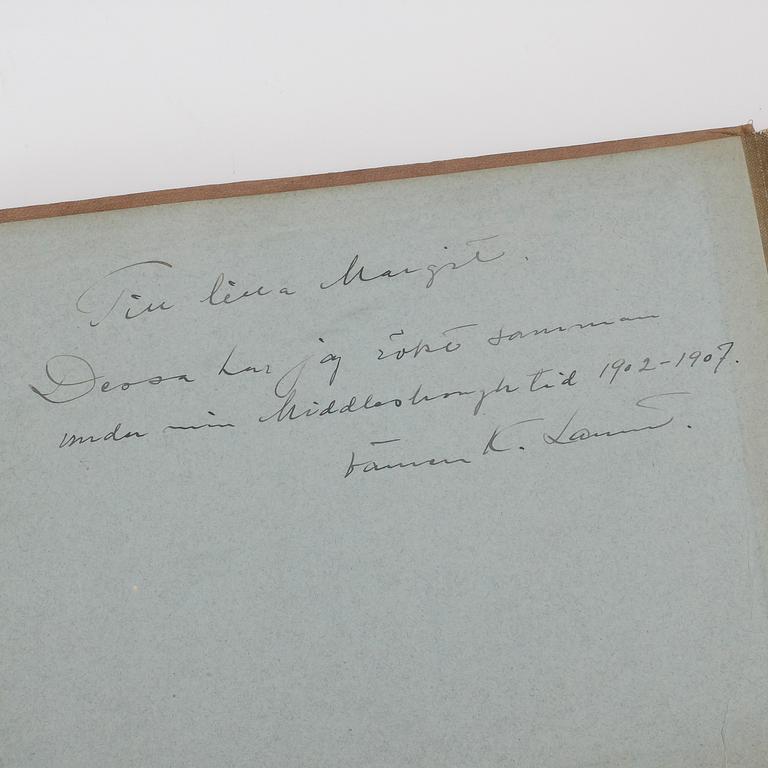 Till lilla Margit.
Dessa har jag rökt samman
under min Middlesbroughtid 1902-1907.
vännen K.